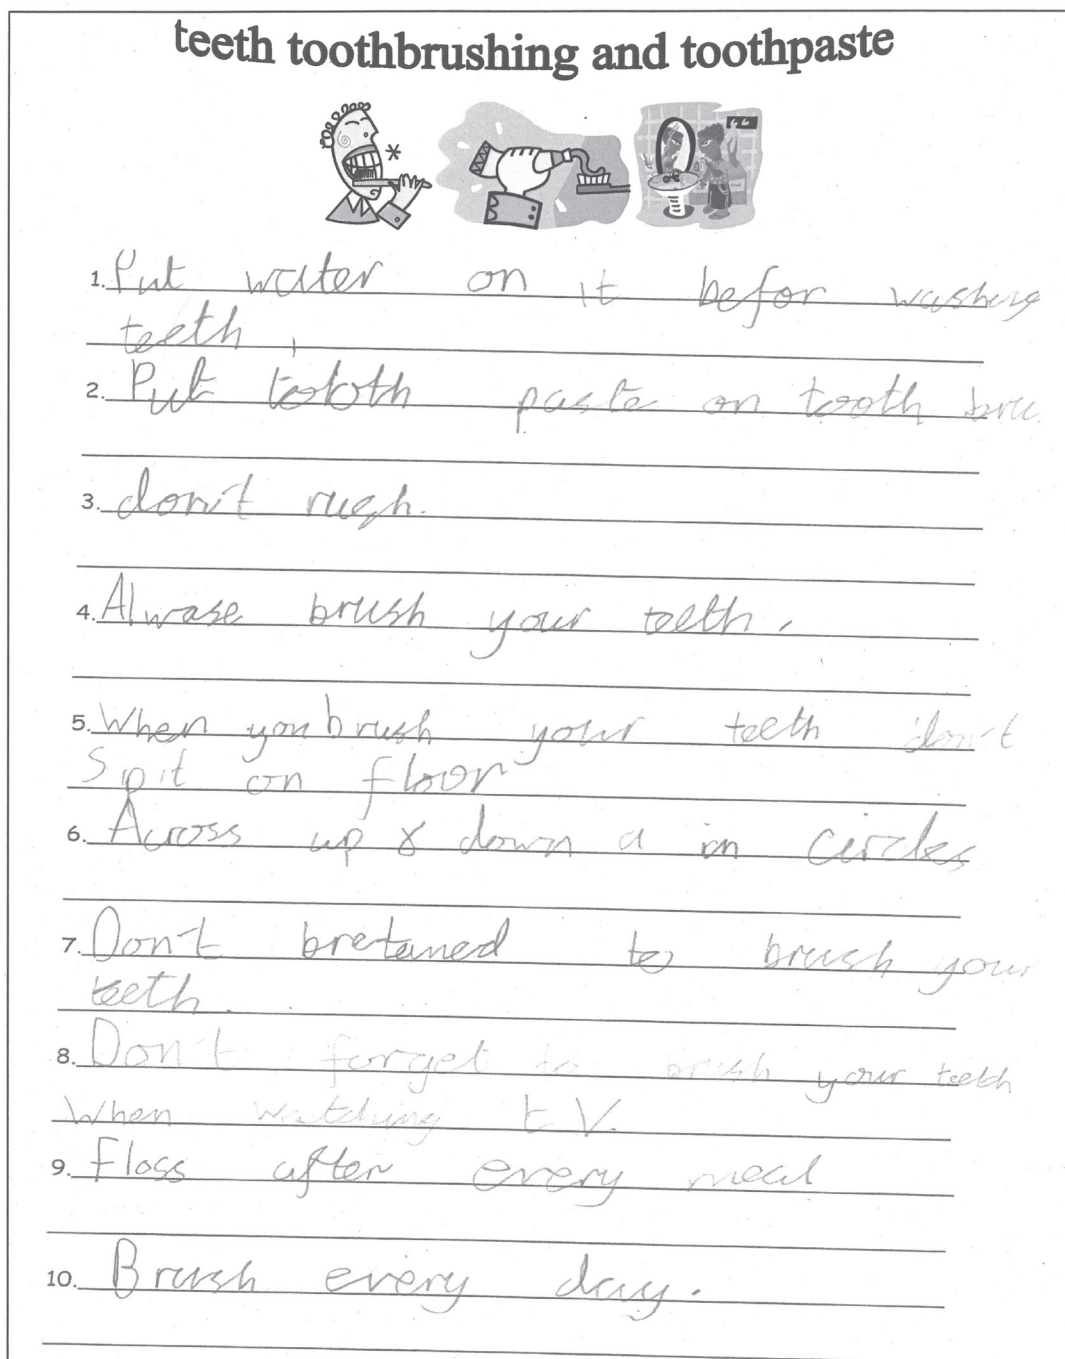 teeth toothbrushing and toothpaste
1. Put water on it befor washing
teeth.
2. Put tooth paste on tooth bru
3. don't rush.
4. Alwase brush your teeth.
5. When you brush your teeth don't
Spit on floor
6. Across up & down a in circles
7. Don't bretened to brush your
teeth.
8. Don't forget to brush your teeth
When watching t V.
9. Floss after every meal
10. Brush every day.